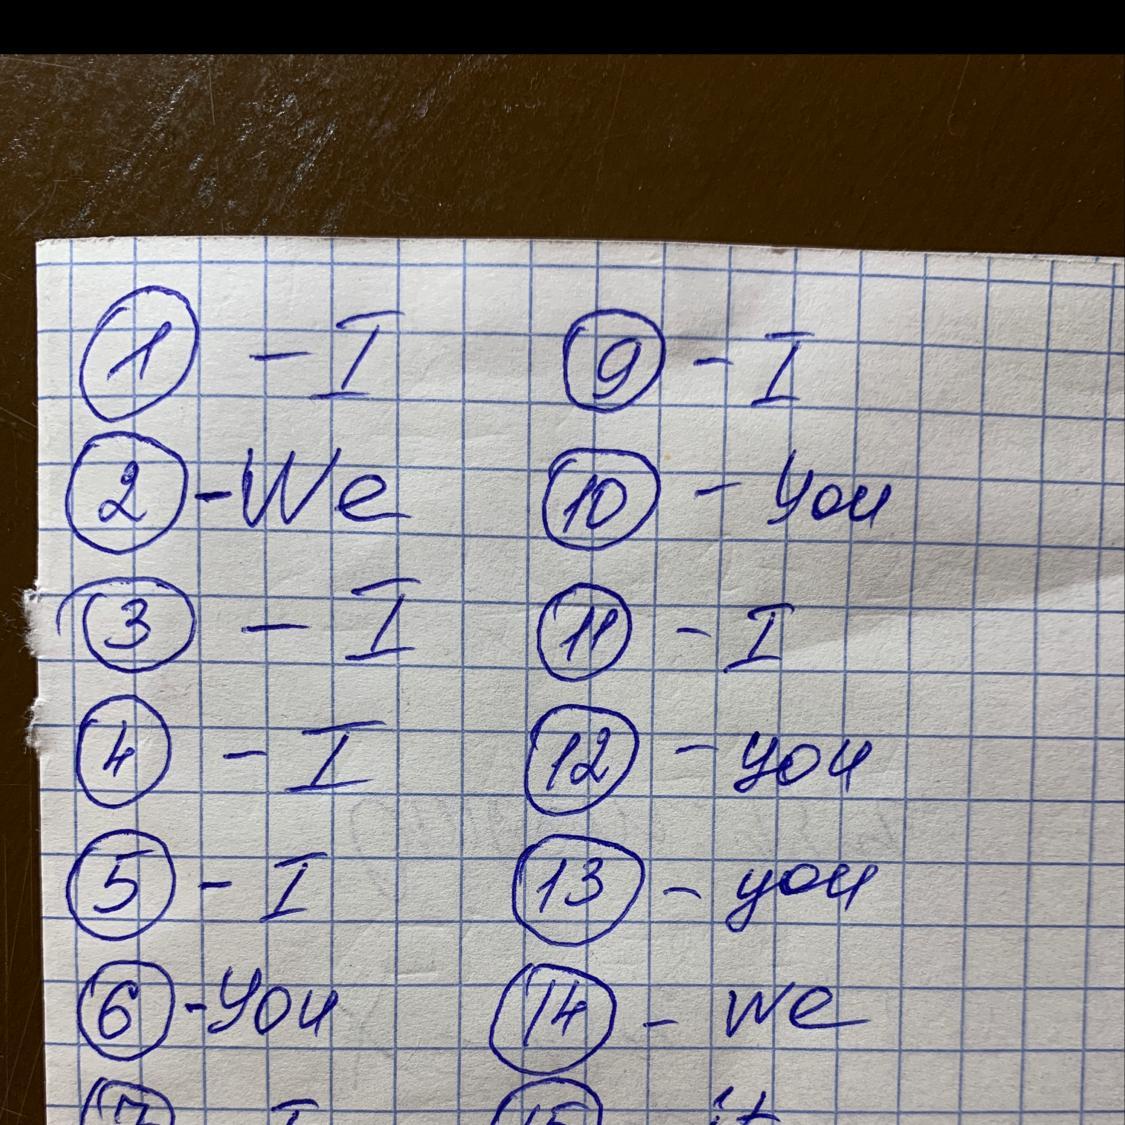 1 - I
2 - We
3 - I
4 - I
5 - I
6 - You
7 - I
9 - I
10 - you
11 - I
12 - you
13 - you
14 - we
15 it